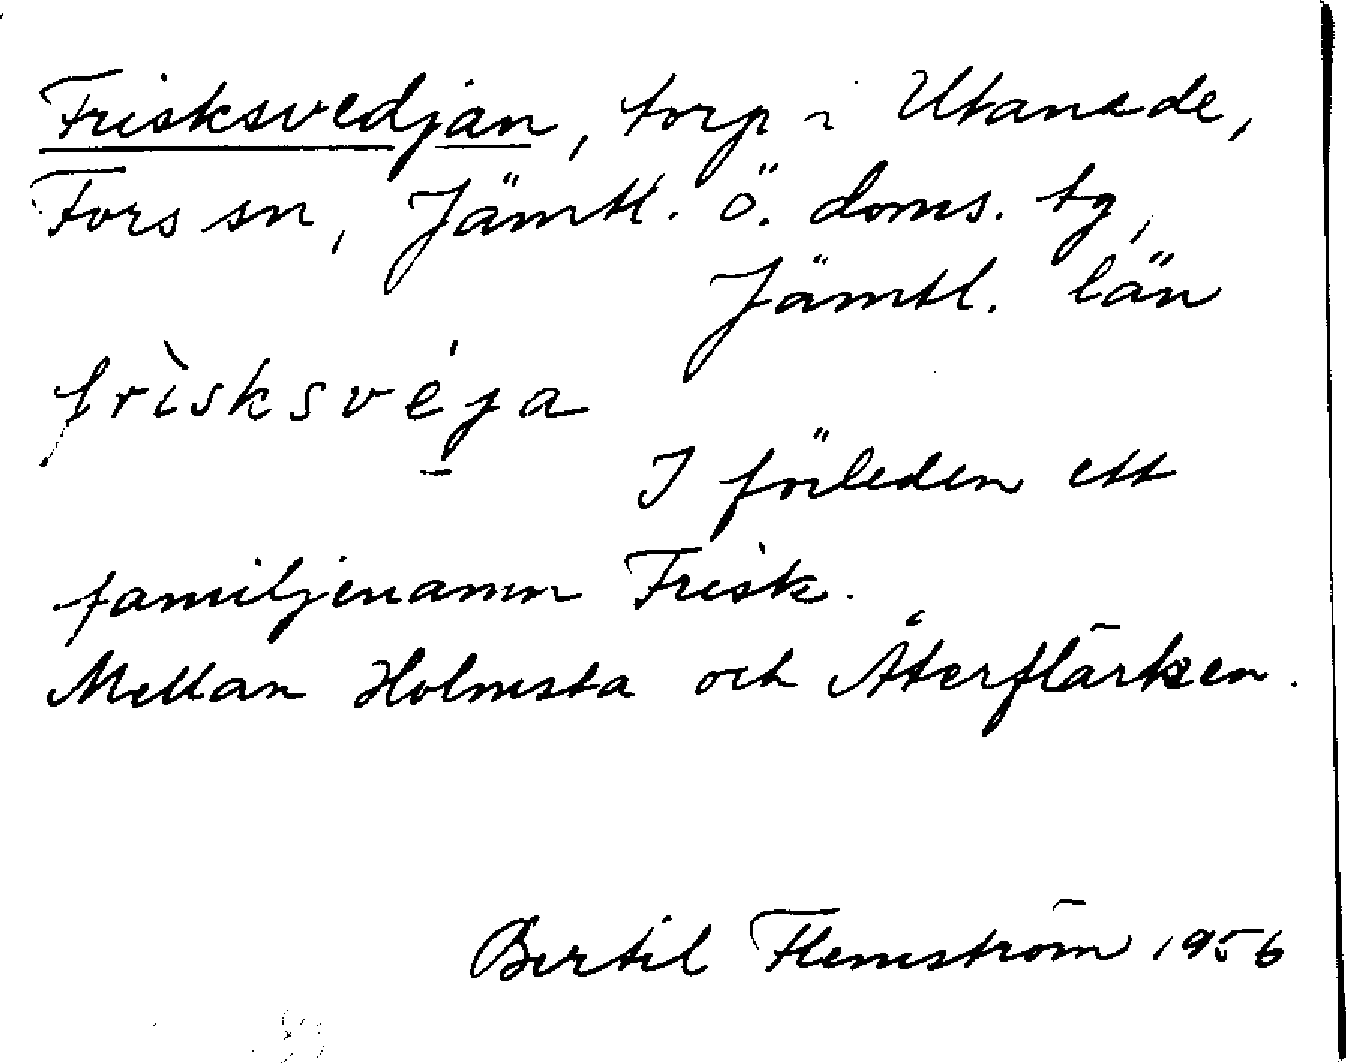 Frisksvedjan, torp i Utanede,
Fors sn, Jämtl. ö. doms. tg,
Jämtl. län
frìsksvéja
I förleden ett
familjenamn Frisk.
Mellan Holmsta och Återflärken.
Bertil Flemström 1956